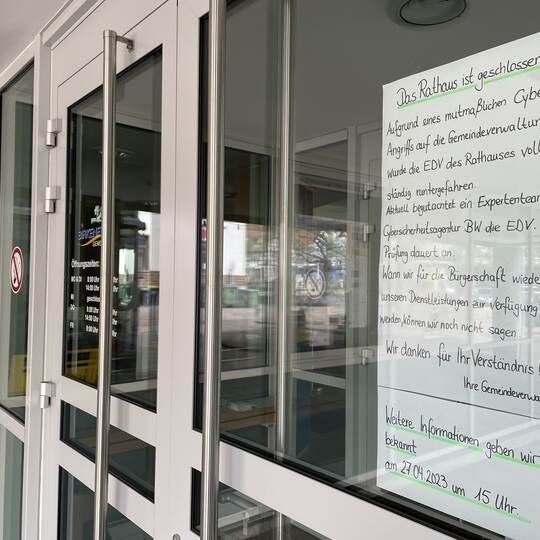 Das Rathaus ist geschlossen
Aufgrund eines mutmaßlichen Cybe
Angriffs auf die Gemeindeverwaltun
wurde die EDV des Rathauses voll
ständig runtergefahren.
Aktuell begutachtet ein Expertenteam
Cybersicherheitsagentur BW die EDV.
Prüfung dauert an.
Wann wir für die Bürgerschaft wiede
unseren Dienstleistungen zur Verfügung
werden, können wir noch nicht sagen
Wir danken für Ihr Verständnis!
Ihre Gemeindeverwa
Weitere Informationen geben wir
bekannt
am 27.04.2023 um 15 Uhr.
Öffnungszeiten:
8:00 Uhr
14:00 Uhr
geschlos
DO 8:00 Uhr
14:00 Uhr
FR 8:00 Uhr